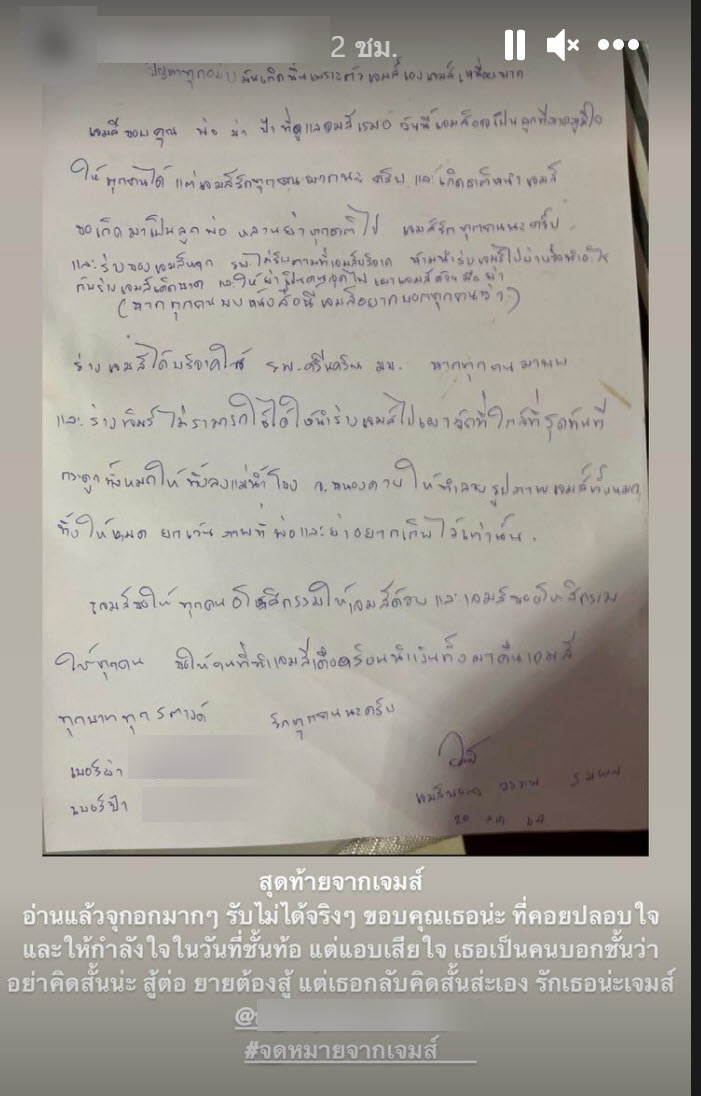 2 ชม.
ปัญหาทุกอย่างมันเกิดขึ้นเพราะตัวเจมส์เอง เจมส์เหนื่อยมาก
เจมส์ขอบคุณ พ่อ ย่า ป้า ที่ดูแลเจมส์เสมอ วันนี้เจมส์
ให้ทุกคนได้ แต่เจมส์รักทุกคนมากนะครับ และเกิดชาติหน้า เจมส์
ขอเกิดมาเป็นลูกพ่อ หลานย่าทุกชาติไป เจมส์รักทุกคนนะครับ
และร่างของเจมส์หาก รพ.ได้รับตามที่เจมส์บริจาค
(หากทุกคนพบหนังสือนี้เจมส์อยากบอกทุกคนว่า)
ร่างเจมส์ได้บริจาคให้ รพ.ศรีนครินทร์ มข. หากทุกคนมาพบ
และร่างเจมส์ไม่สามารถใช้ได้ให้นำร่างเจมส์ไปเผาวัดที่ใกล้ที่สุดทันที
กระดูกทั้งหมดให้ทิ้งลงแม่น้ำโขง จ.หนองคาย ให้ทำลายรูปภาพเจมส์ทั้งหมด
ทิ้งให้หมด ยกเว้นภาพที่พ่อและย่าอยากเก็บไว้เท่านั้น.
เจมส์ขอให้ทุกคนอโหสิกรรมให้เจมส์ด้วย และเจมส์ขออโหสิกรรม
ให้ทุกคน ขอให้คนที่ทำเจมส์เดือดร้อนนำเงินทั้งมาคืนเจมส์
ทุกบาททุกสตางค์ รักทุกคนนะครับ
เบอร์ย่า
เบอร์ป้า
สุดท้ายจากเจมส์
อ่านแล้วจุกอกมากๆ รับไม่ได้จริงๆ ขอบคุณเธอน่ะ ที่คอยปลอบใจ
และให้กำลังใจในวันที่ชั้นท้อ แต่แอบเสียใจ เธอเป็นคนบอกชั้นว่า
อย่าคิดสั้นน่ะ สู้ต่อ ยายต้องสู้ แต่เธอกลับคิดสั้นส่ะเอง รักเธอน่ะเจมส์
@
#จดหมายจากเจมส์